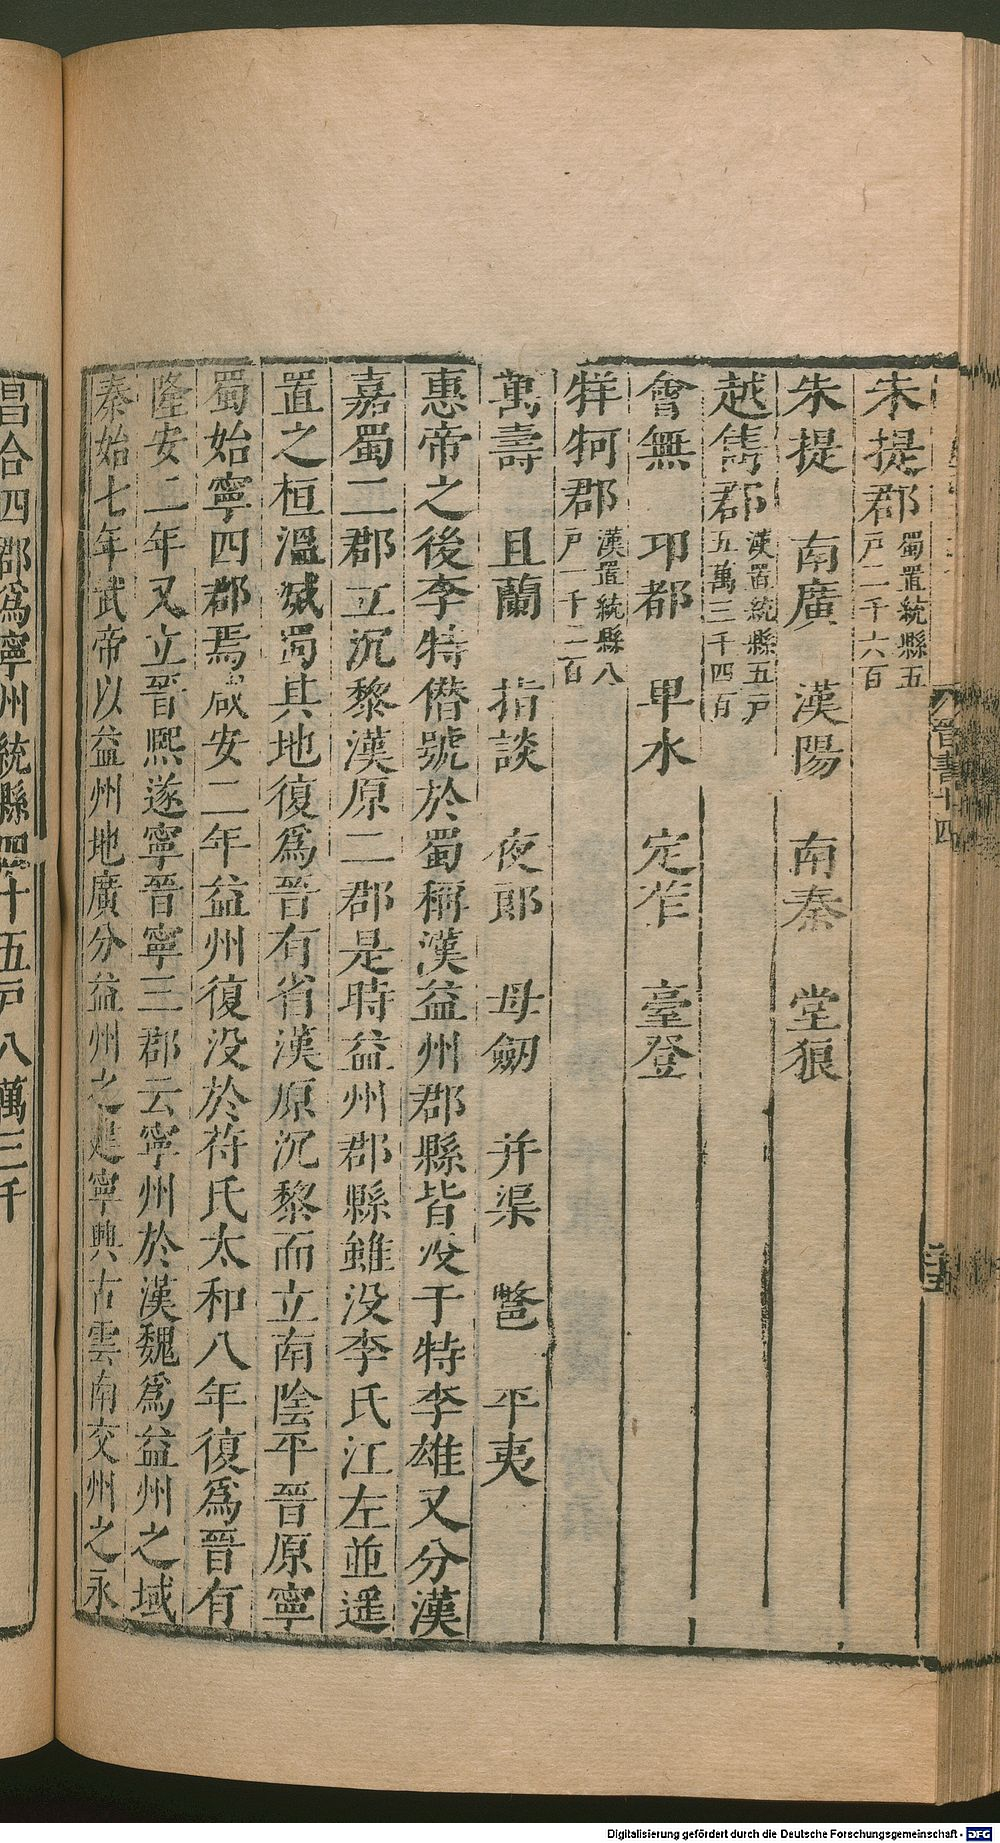 朱提郡蜀置統縣五戸二千六百
朱提 南廣 漢陽 南秦 堂狼
越雋郡漢置統縣五戸五萬三千四百
會無 卭都 卑水 定笮 臺登
牂牁郡漢置統縣八戸一千二百
萬壽 且蘭 指談 夜郎 母劒 并渠 鄨 平夷
惠帝之後李特僭號於蜀稱漢益州郡縣皆没于特李雄又分漢
嘉蜀二郡立沉黎漢原二郡是時益州郡縣雖没李氏江左並遥
置之桓溫滅蜀其地復爲晉有省漢原沉黎而立南陰平晉原寧
蜀始寧四郡焉咸安二年益州復没於苻氏太和八年復爲晉有
隆安二年又立晉熙遂寧晉寧三郡云寧州於漢魏爲益州之域
泰始七年武帝以益州地廣分益州之建寧興古雲南交州之永
昌合四郡爲寧州統縣四十五戸八萬三千
晉書十四